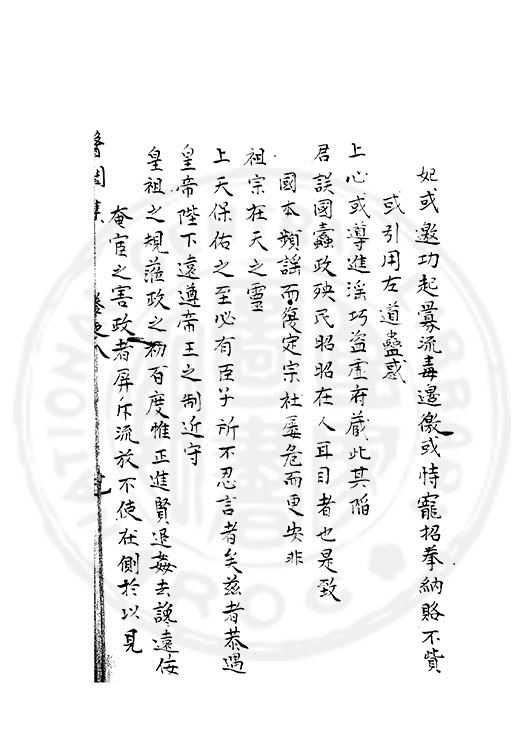 妃或邀功起釁流毒邊徼或恃寵招拳納賂不貲
或引用左道蠱惑
上心或導進淫巧盜虛府藏此其陷
君誤國蠹政殃民昭昭在人耳目者也是致
國本頻謡而復定宗社屢危而更安非
祖宗在天之靈
上天保佑之至必有臣子所不忍言者矣茲者恭遇
皇帝陛下遠遵帝王之制近守
皇祖之規蒞政之初百度惟正進賢退姦去讒遠佞
奄宦之害政者屏斥流放不使在側於以見